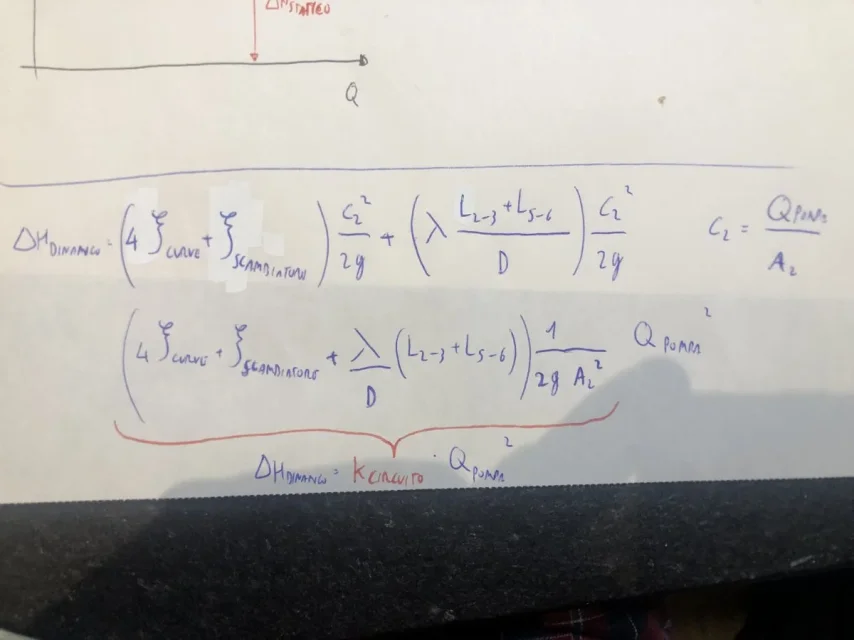 ΔH STATICO
Q
ΔH DINAMICO = (4 ξ CURVE + ξ SCAMBIATORE) C₂²/2g + (λ (L₂₋₃ + L₅₋₆)/D) C₂²/2g   C₂ = Q POMPA/A₂
(4 ξ CURVE + ξ SCAMBIATORE + λ/D (L₂₋₃ + L₅₋₆)) 1/(2g A₂²) Q POMPA²
ΔH DINAMICO = K CIRCUITO · Q POMPA²